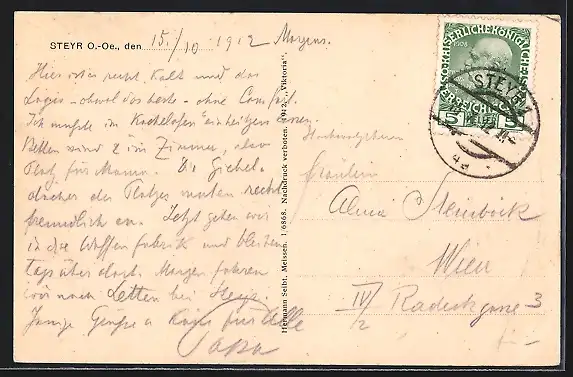 STEYR O.-Oe., den 15./10 1912 Morgens.
Hier ist es recht kalt und das
Logis - obwol das beste - ohne Comfort.
Ich musste im Kachelofen einheizen lassen.
Betten sind 2 im Zimmer, also
Platz für Mama. Die Giebel-
dächer des Platzes muten recht
freundlich an. Jetzt gehen wir
in die Waffenfabrik und bleiben
tags über dort. Morgen fahren
wir nach Letten bei Steyr.
Innige Grüsse u Küsse für Alle
Papa
Hermann Seibt, Meissen. 1 6868. Nachdruck verboten. 1912. „Viktoria"
KAISERLICHE KÖNIGLICHE
1908
ÖSTERREICHISCHE
5 5
STEYR
Hochwohlgeboren
Fräulein
Alma Steinböck
Wien
IV/2 Radeckgasse 3